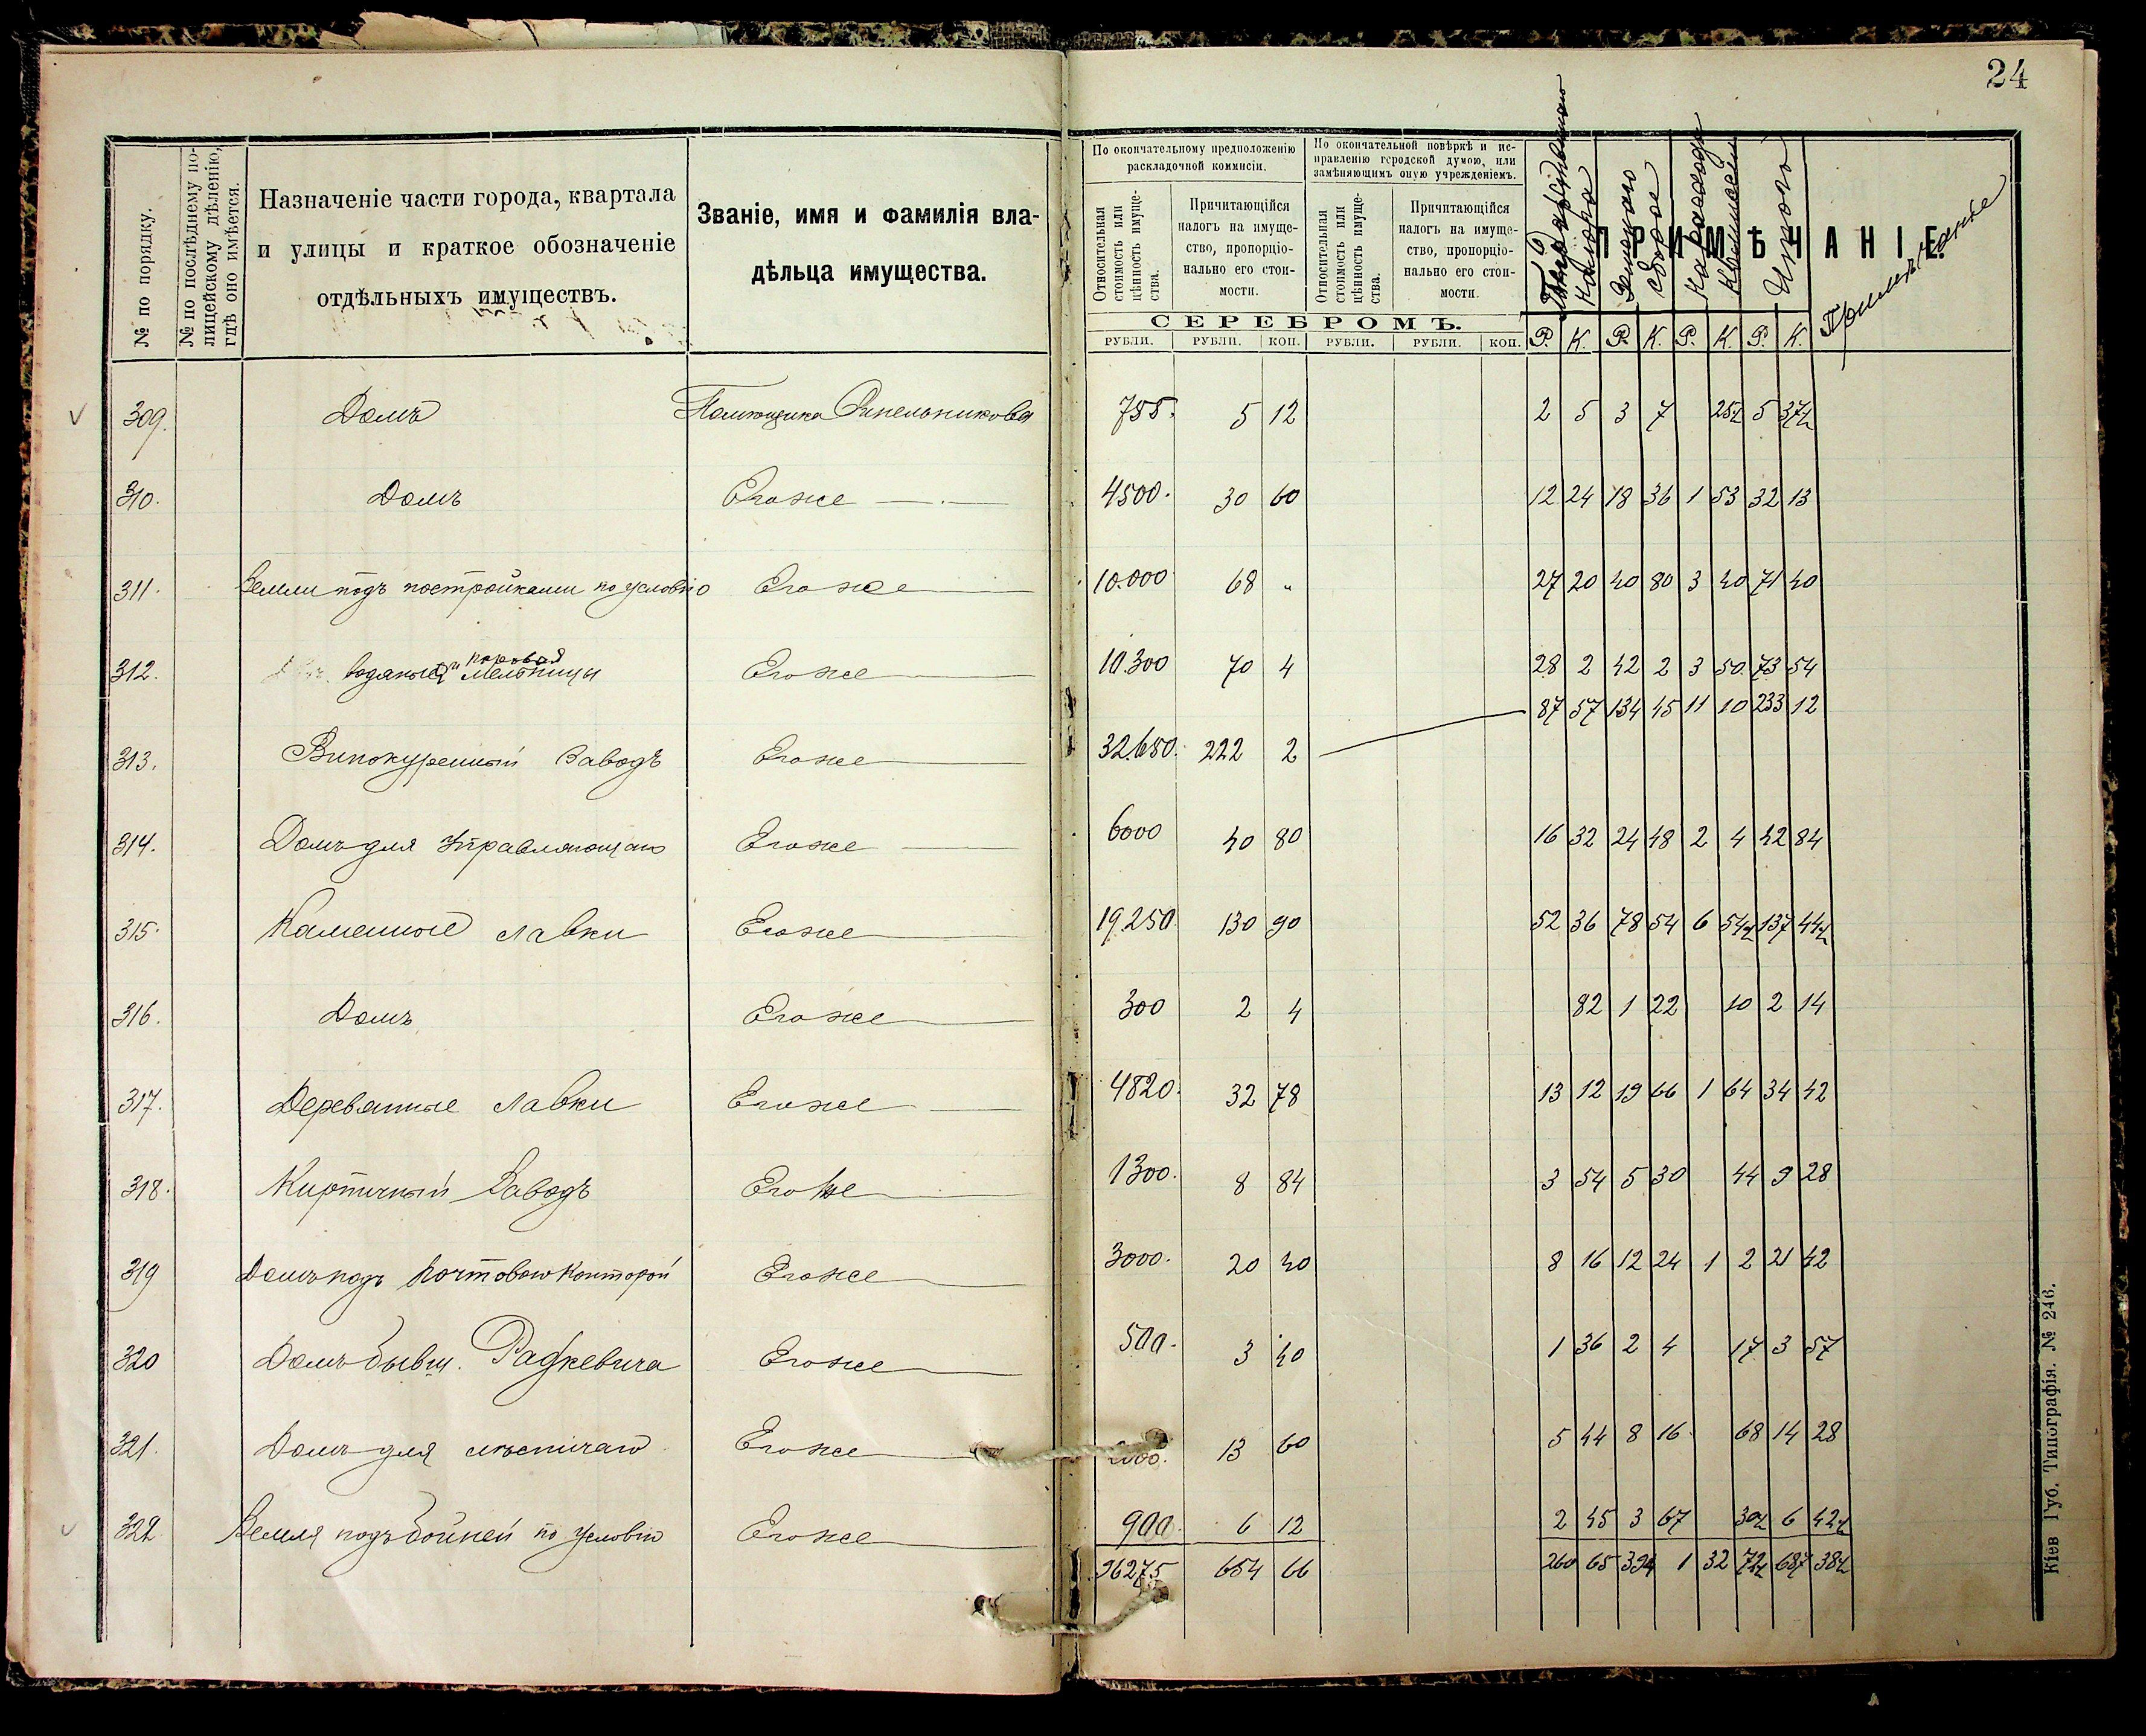 24
№ по порядку.
№ по послѣднему по-
лицейскому дѣленію,
гдѣ оно имѣется.
Назначеніе части города, квартала
и улицы и краткое обозначеніе
отдѣльныхъ имуществъ.
Званіе, имя и фамилія вла-
дѣльца имущества.
По окончательному предположенію
раскладочной коммисіи.
По окончательной повѣркѣ и ис-
правленію городской думою, или
замѣняющимъ оную учрежденіемъ.
Относительная
стоимость или
цѣнность имуще-
ства.
Причитающійся
налогъ на имуще-
ство, пропорціо-
нально его стои-
мости.
Относительная
стоимость или
цѣнность имуще-
ства.
Причитающійся
налогъ на имуще-
ство, пропорціо-
нально его стои-
мости.
ПРИМѢЧАНІЕ.
Земскаго
сбора
На расходы
Коммисіи
Итого
Примѣчаніе
СЕРЕБРОМЪ.
РУБЛИ. РУБЛИ. КОП. РУБЛИ. РУБЛИ. КОП. Р. К. Р. К. Р. К. Р. К.
309. Домъ Помѣщика Синельникова 755. 5 12 2 5 3 7 25½ 5 37½
310. Домъ Егоже 4500. 30 60 12 24 18 36 1 53 32 13
311. Земли подъ постройками по условію Егоже 10.000 68 „ 27 20 40 80 3 40 71 40
312. водяныя и паровая мельницы Егоже 10.300 70 4 28 2 42 2 3 50. 73 54
87 57 134 45 11 10 233 12
313. Винокуренный Заводъ Егоже 32.650. 222 2
314. Домъ для Управляющаго Егоже 6000 40 80 16 32 24 48 2 4 42 84
315. Каменные лавки Егоже 19.250 130 90 52 36 78 54 6 54½ 137 44½
316. Домъ Егоже 300 2 4 82 1 22 10 2 14
317. Деревянные лавки Егоже 4820. 32 78 13 12 19 66 1 64 34 42
318. Кирпичный Заводъ Егоже 1300. 8 84 3 54 5 30 44 9 28
319 Домъ подъ почтовою Конторой Егоже 3000. 20 40 8 16 12 24 1 2 21 42
320 Домъ бывш. Радкевича Егоже 500. 3 40 1 36 2 4 17 3 57
321. Домъ для Егоже 2000. 13 60 5 44 8 16 68 14 28
322 Земля подъ бойней по условію Егоже 900. 6 12 2 45 3 67 30½ 6 42½
96275 654 66 260 65 394 1 32 72½ 687 38½
Кіев Губ. Типографія. № 246.